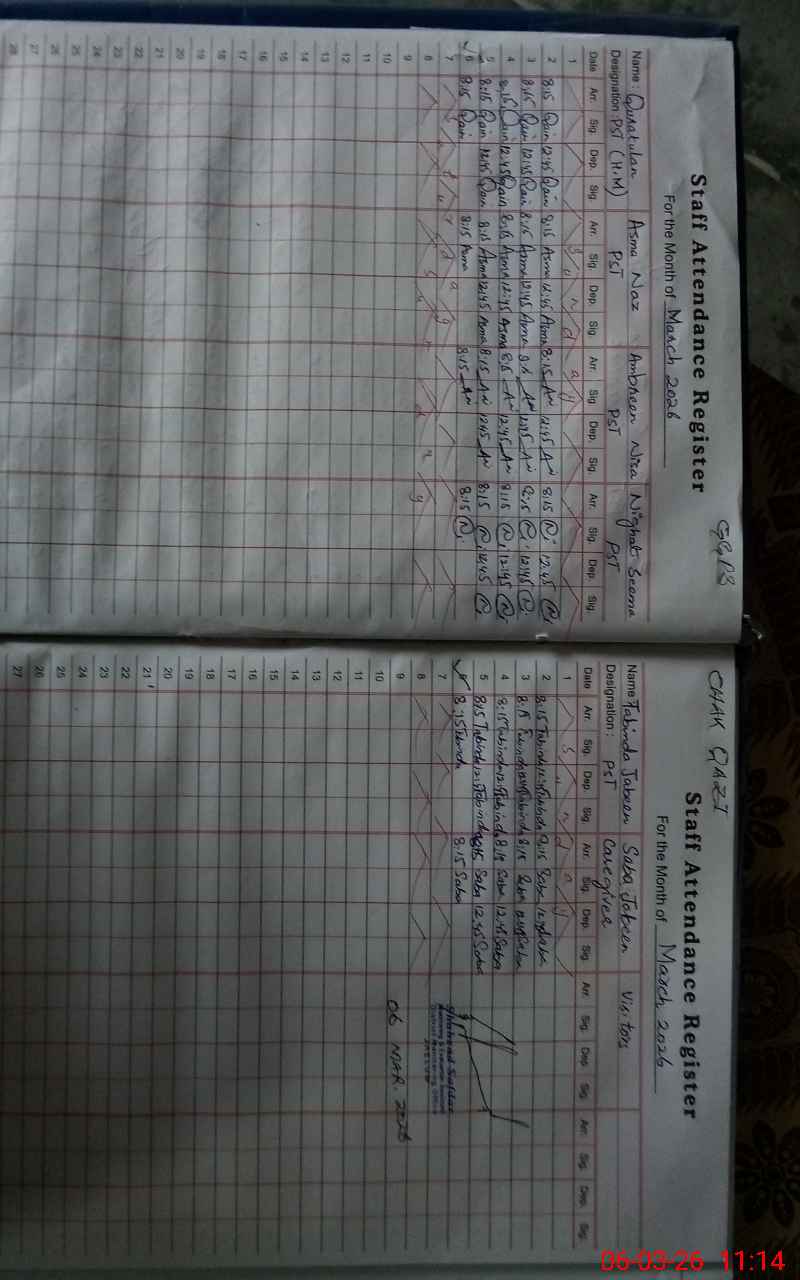 GGPS
Staff Attendance Register
For the Month of March 2026
Name: Quratulan Asma Naz Ambreen Nisa Nighat Seema
Designation: PST (H.M) PST PST PST
Date Arr. Sig. Dep. Sig. Arr. Sig. Dep. Sig. Arr. Sig. Dep. Sig. Arr. Sig. Dep. Sig.
1 Sunday
2 8:15 Qain 12:45 Qain 8:15 Asma 12:45 Asma 8:15 An 12:45 An 8:15 12:45
3 8:15 Qain 12:45 Qain 8:15 Asma 12:45 Asma 8:15 An 12:45 An 8:15 12:45
4 8:15 Qain 12:45 Qain 8:15 Asma 12:45 Asma 8:15 An 12:45 An 8:15 12:45
5 8:15 Qain 12:45 Qain 8:15 Asma 12:45 Asma 8:15 An 12:45 An 8:15 12:45
6 8:15 Qain 8:15 Asma 8:15 An 8:15
7 Saturday
8 Sunday
9
10
11
12
13
14
15
16
17
18
19
20
21
22
23
24
25
26
27
28
CHAK QAZI
Staff Attendance Register
For the Month of March 2026
Name Tabinda Jabeen Saba Jabeen Visitors
Designation: PST Caregiver
Date Arr. Sig. Dep. Sig. Arr. Sig. Dep. Sig. Arr. Sig. Dep. Sig. Arr. Sig. Dep. Sig.
1 Sunday
2 8:15 Tabinda 12:45 Tabinda 8:15 Saba 12:45 Saba
3 8:15 Tabinda 12:45 Tabinda 8:15 Saba 12:45 Saba
4 8:15 Tabinda 12:45 Tabinda 8:15 Saba 12:45 Saba
5 8:15 Tabinda 12:45 Tabinda 8:15 Saba 12:45 Saba
6 8:15 Tabinda 8:15 Saba
7
8
9
10
11
12
13
14
15
16
17
18
19
20
21
22
23
24
25
26
27
Monitoring & Evaluation Assistant
District Monitoring Office
06 MAR. 2026
06-03-26 11:14